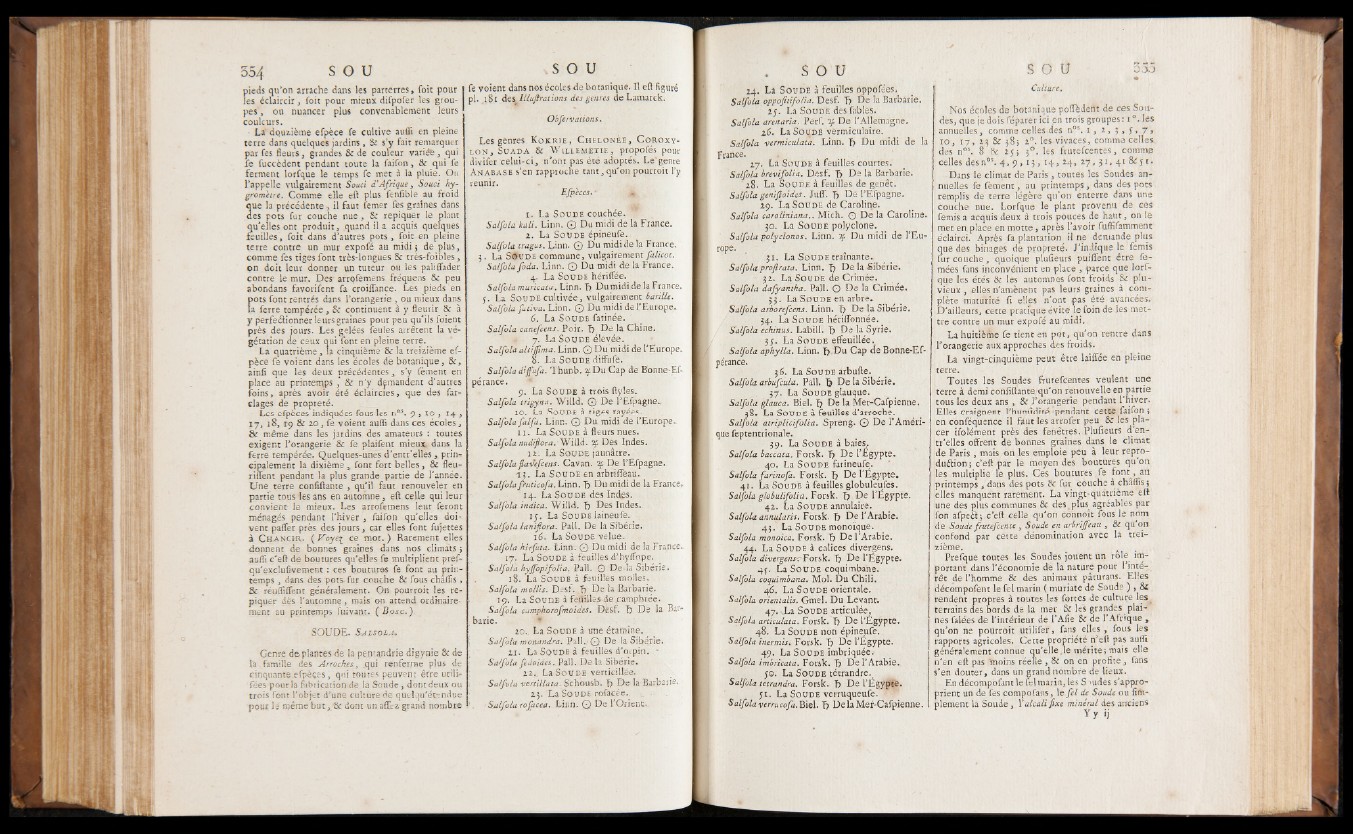 354 SOU
pieds qu'on arrache dans les parterres, soit pour
les éclaircir, soit pour mieux disposer les grou-
pes, ou nuancer plus convenablement leurs
couleurs.
La douzième espèce se cultive aussi en pleine
terre dans quelques jardins, & s'y fait remarquer
par ses fleurs, grandes & de couleur variée, qui
se succèdent pendant toute la saison, & qui se
ferment lorsque le temps se met à la pluie. On
l'appelle vulgairement Souci d'Afrique, Souci hy-
gromètre. Comme elle est plus sensible au froid
que la précédente, il faut semer ses graines dans
des pots sur couche nue, & repiquer le plant
qu'elles ont produit, quand il a acquis quelques
feuilles, soit dans d'autres pots, soit en pleine
terre contre un mur exposé au midi; de plus,
comme ses tiges sont très-longues & très-foibles,
on doit leur donner un tuteur ou les palissader
contre le mur. Des arrosemens fréquens & peu
abondans favorisent sa croissance. Les pieds en
pots sont rentrés dans l'orangerie, ou mieux dans
la serre tempérée, & continuent à y fleurir & à
y perfectionner leurs graines pour peu qu'ils soient
près des jours. Les gelées seules arrêtent la vé-
gétation de ceux qui sont en pleine terre.
La quatrième, la cinquième & la treizième es-
pèce se voient dans les écoles de botanique, &,
ainsi que les deux précédentes, s'y sement en
place au printemps, & n'y demandent d'autres
soins, après avoir été éclaircies, que des sar-
clages de propreté.
Les espèces indiquées sous les nos. 9, 10, 14,
17, 18, 19 & 20, se voient aussi dans ces écoles,
& même dans les jardins des amateurs : toutes
exigent l'orangerie & se plaisent mieux dans la
serre tempérée. Quelques-unes d'entr'elles, prin-
cipalement la dixième, sont fort belles, & fleu-
rissent pendant la plus grande partie de l'année.
Une terre consistante, qu'il faut renouveler en
partie tous les ans en automne, est celle qui leur
convient le mieux. Les arrosemens leur seront
ménagés pendant l'hiver, saison qu'elles doi-
vent passer près des jours, car elles sont sujettes
à CHANCIR. (Voyez ce mot.) Rarement elles
donnent de bonnes graines dans nos climats;
aussi c'est de boutures qu'elles se multiplient pres-
qu'exclusivement : ces boutures se font au prin-
temps, dans des pots sur couche & sous châssis,
& réussissent généralement. On pourroit les re-
piquer dès l'automne, mais on attend ordinaire-
ment au printemps suivant. (Bosc.)
SOUDE. SALSOLA.
Genre de plantes de la pentandrie digynie & de
la famille des Arroches, qui renferme plus de
cinquante espèces, qui toutes peuvent être utili-
sées pour la fabrication de la Soude, dont deux ou
trois sont l'objet d'une culture de quelqu'étendue
pour le même but, & dont un assez grand nombre
SOU
se voient dans nos écoles de botanique. Il est figuré
pl. 181 des Illustrations des genres de Lamarck.
Observations.
Les genres KOKRIE, CHELONÉE, COROXY-
LON, SUADA & WILLEMETIE, proposés pour
diviser celui-ci, n'ont pas été adoptés. Le genre
ANABASE s'en rapproche tant, qu'on pourroit l'y
réunir.
Espèces.
1. La SOUDE couchée.
Salsola kali. Linn. ☉ Du midi de la France.
2. La SOUDE épineuse.
Salsola tragus. Linn. ☉ Du midi de la France.
3. La SOUDE commune, vulgairement salicot.
Salsola soda. Linn. ☉ Du midi de la France.
4. La SOUDE hérissée.
Salsola muricata. Linn. ♄ Du midi de la France.
5. La SOUDE cultivée, vulgairement barille.
Salsola sativa. Linn. ☉ Du midi de l'Europe.
6. La SOUDE satinée.
Salsola canescens. Poir. ♄ De la Chine.
7. La SOUDE élevée.
Salsola altissima. Linn. ☉ Du midi de l'Europe.
8. La SOUDE diffuse.
Salsola diffusa. Thunb. ♃ Du Cap de Bonne-Es-
pérance.
9. La SOUDE à trois styles.
Salsola trigyna. Willd. ☉ De l'Espagne.
10. La SOUDE à tiges rayées.
Salsola salsa. Linn. ☉ Du midi de l'Europe.
11. La SOUDE à fleurs nues.
Salsola nudiflora. Willd. ♃ Des Indes.
12. La SOUDE jaunâtre.
Salsola flavescens. Cavan. ♃ De l'Espagne.
13. La SOUDE en arbrisseau.
Salsola fruticosa. Linn. ♄ Du midi de la France.
14. La SOUDE des Indes.
Salsola indica. Willd. ♄ Des Indes.
15. La SOUDE laineuse.
Salsola laniflora. Pall. De la Sibérie.
16. La SOUDE velue.
Salsola hirsuta. Linn. ☉ Du midi de la France.
17. La SOUDE à feuilles d'hyssope.
Salsola hyssopifolia. Pall. ☉ De la Sibérie.
18. La SOUDE à feuilles molles.
Salsola mollis. Desf. ♄ De la Barbarie.
19. La SOUDE à feuilles de camphrée.
Salsola camphorosmoides. Desf. ♄ De la Bar-
barie.
20. La SOUDE à une étamine.
Salsola monandra. Pall. ☉ De la Sibérie.
21. La SOUDE à feuilles d'orpin.
Salsola sedoides. Pall. De la Sibérie.
22. La SOUDE verticillée.
Salsola verticillata. Schousb. ♄ De la Barbarie.
23. La SOUDE rosacée.
Salsola rosacea. Linn. ☉ De l'Orient.
SOU
24. La SOUDE à feuilles opposées.
Salsola oppositifolia. Desf. ♄ De la Barbarie.
25. La SOUDE des sables.
Salsola arenaria. Pers. ♃ De l'Allemagne.
26. La SOUDE vermiculaire.
Salsola vermiculata. Linn. ♄ Du midi de la
France.
27. La SOUDE à feuilles courtes.
Salsola brevifolia. Desf. ♄ De la Barbarie.
28. La SOUDE à feuilles de genêt.
Salsola genistoides. Juss. ♄ De l'Espagne.
29. La SOUDE de Caroline.
Salsola caroliniana. Mich. ☉ De la Caroline.
30. La SOUDE polyclone.
Salsola polyclonos. Linn. ♃ Du midi de l'Eu-
rope.
31. La SOUDE traînante.
Salsola prostrata. Linn. ♄ De la Sibérie.
32. La SOUDE de Crimée.
Salsola dasyantha. Pall. ☉ De la Crimée.
33. La SOUDE en arbre.
Salsola arborescens. Linn. ♄ De la Sibérie.
34. La SOUDE hérissonnée.
Salsola echinus. Labill. ♄ De la Syrie.
35. La SOUDE effeuillée.
Salsola aphylla. Linn. ♄ Du Cap de Bonne-Es-
pérance.
36. La SOUDE arbuste.
Salsola arbuscula. Pall. ♄ De la Sibérie.
37. La SOUDE glauque.
Salsola glauca. Biel. ♄ De la Mer-Caspienne.
38. La SOUDE à feuilles d'arroche.
Salsola atriplicifolia. Spreng. ☉ De l'Améri-
que septentrionale.
39. La SOUDE à baies.
Salsola baccata. Forsk. ♄ De l'Égypte.
40. La SOUDE farineuse.
Salsola farinosa. Forsk. ♄ De l'Égypte.
41. La SOUDE à feuilles globuleuses.
Salsola globulifolia. Forsk. ♄ De l'Égypte.
42. La SOUDE annulaire.
Salsola annularis. Forsk. ♄ De l'Arabie.
43. La SOUDE monoïque.
Salsola monoica. Forsk. ♄ De l'Arabie.
44. La SOUDE à calices divergens.
Salsola divergens. Forsk. ♄ De l'Égypte.
45. La SOUDE coquimbane.
Salsola coquimbana. Mol. Du Chili.
46. La SOUDE orientale.
Salsola orientalis. Gmel. Du Levant.
47. La SOUDE articulée.
Salsola articulata. Forsk. ♄ De l'Égypte.
48. La SOUDE non épineuse.
Salsola inermis. Forsk. ♄ De l'Égypte.
49. La SOUDE imbriquée.
Salsola imbricata. Forsk. ♄ De l'Arabie.
50. La SOUDE tétrandre.
Salsola tetrandra. Forsk. ♄ De l'Égypte.
51. La SOUDE verruqueuse.
Salsola verrucosa. Biel. ♄ De la Mer-Caspienne.
SOU 355
Culture.
Nos écoles de botanique possèdent de ces Sou-
des, que je dois séparer ici en trois groupes : 1°. les
annuelles, comme celles des nos. 1, 2, 3, 5, 7,
10, 17, 23 & 38; 2°. les vivaces, comme celles
des nos. 8 & 25; 3°. les frutescentes, comme
celles des nos. 4, 9, 13, 14, 24, 27, 31, 41 & 51.
Dans le climat de Paris, toutes les Soudes an-
nuelles se sement, au printemps, dans des pots
remplis de terre légère qu'on enterre dans une
couche nue. Lorsque le plant provenu de ces
semis a acquis deux à trois pouces de haut, on le
met en place en motte, après l'avoir suffisamment
éclairci. Après sa plantation il ne demande plus
que des binages de propreté. J'indique le semis
sur couche, quoique plusieurs puissent être se-
mées sans inconvénient en place, parce que lors-
que les étés & les automnes sont froids & plu-
vieux, elles n'amènent pas leurs graines à com-
plète maturité si elles n'ont pas été avancées.
D'ailleurs, cette pratique évite le soin de les met-
tre contre un mur exposé au midi.
La huitième se tient en pot, qu'on rentre dans
l'orangerie aux approches des froids.
La vingt-cinquième peut être laissée en pleine
terre.
Toutes les Soudes frutescentes veulent une
terre à demi consistante qu'on renouvelle en partie
tous les deux ans, & l'orangerie pendant l'hiver.
Elles craignent l'humidité pendant cette saison;
en conséquence il faut les arroser peu & les pla-
cer isolément près des fenêtres. Plusieurs d'en-
tr'elles offrent de bonnes graines dans le climat
de Paris, mais on les emploie peu à leur repro-
duction; c'est par le moyen des boutures qu'on
les multiplie le plus. Ces boutures se font, au
printemps, dans des pots & sur couche à châssis;
elles manquent rarement. La vingt-quatrième est
une des plus communes & des plus agréables par
son aspect; c'est celle qu'on connoît sous le nom
de Soude frutescente, Soude en arbrisseau, & qu'on
confond par cette dénomination avec la trei-
zième.
Presque toutes les Soudes jouent un rôle im-
portant dans l'économie de la nature pour l'inté-
rêt de l'homme & des animaux pâturans. Elles
décomposent le sel marin (muriate de Soude), &
rendent propres à toutes les sortes de culture les
terrains des bords de la mer & les grandes plai-
nes salées de l'intérieur de l'Asie & de l'Afrique,
qu'on ne pourroit utiliser, sans elles, sous les
rapports agricoles. Cette propriété n'est pas aussi
généralement connue qu'elle le mérite; mais elle
n'en est pas moins réelle, & on en profite, sans
s'en douter, dans un grand nombre de lieux.
En décomposant le sel marin, les Soudes s'appro-
prient un de ses composans, le sel de Soude ou sim-
plement la Soude, l'alcali fixe minéral des anciens
Y y ij